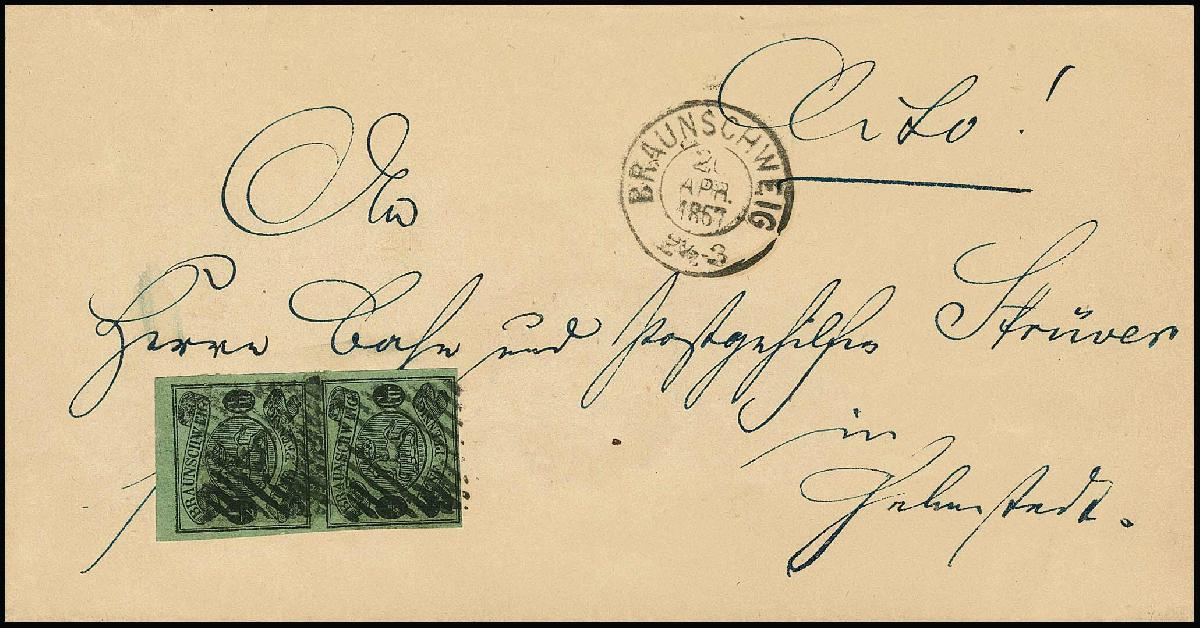 Cito!
BRAUNSCHWEIG
APR.
1867
2½-3
An
Herrn Bahn und Postgehilfen Strüver
in
Helmstedt.
BRAUNSCHWEIG
BRAUNSCHWEIG